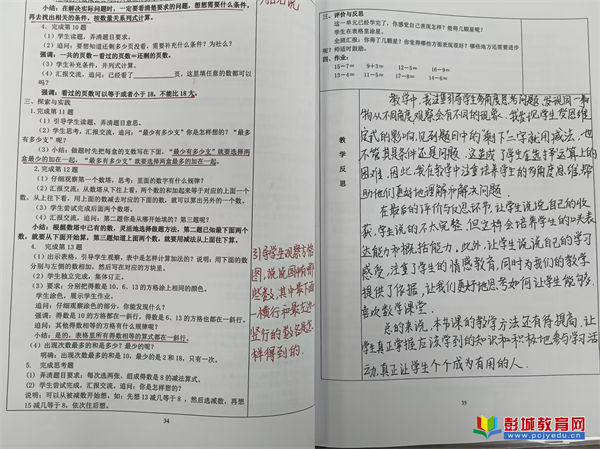 小结：在解决实际问题时，一定要看清楚要求的问题，想想需要什么条件，
再去找出相关的条件，按数量关系列式计算。
4. 完成第 10 题
（1）学生读题，弄清题目要求。
（2）追问：要想知道还剩多少页没看，需要补充什么条件？为什么？
强调：一共的页数－已看的页数＝还剩的页数。
（3）学生补充条件，并列式计算。
（4）汇报交流，追问：已经看了 页，这里填任意的数都可以
吗？
强调：看过的页数可以等于或者小于 18，不能比 18 大。
三、探索与实践
1. 完成第 11 题
（1）引导学生读题，弄清题目意思。
（2）学生思考，汇报交流。追问：“最少有多少支”你是怎样想的？“最
有多少支”呢？
（3）小结：做题时先把每盒的支数写在下面，“最少有多少支”就要选择两
盒最少的加在一起，“最多有多少支”就要选择两盒最多的加在一起。
2. 完成第 12 题
（1）仔细观察第一个数塔，思考：里面的数字有什么规律？
（2）汇报交流，追问：从数塔从下往上看，两个数的和加起来等于对应的上面一个
数，从上往下看，用上面的数减去对应的下面的一个数，就可以算出另外的一个数。
（3）学生尝试完成后面两个数塔。
（4）汇报交流，追问：第二题你是从哪开始填的？第三题呢？
小结：根据数塔中已有的数，灵活地选择做题方法，第二题已知最下面两个
数，就要从下面开始算。第三题知道上面两个数，就要用减法从上面往下算。
4. 完成第 13 题
（1）出示表格，引导学生观察，表中是怎样计算加法的？说明：用上面的数
分别与左侧的数相加，然后写在对应的方块里。
（2）学生独立完成，集体订正。
（3）要求：分别把得数是 10、6、13 的方格涂上相同的颜色。
学生涂色，展示学生作业。
追问：仔细观察涂色的部分，你能发现什么？
强调：得数是 10 的方格都在一斜行，得数是 6、13 的方格也都在一斜行。
追问：其他得数相等的方格有什么规律呢？
小结：是的，表格里所有得数相等的算式都在一斜行。
（4）出现次数最多的和是多少？最少的呢？
明确：出现次数最多的和是 10，最少的是 2 和 18，只有一次。
5. 完成思考题
（1）弄清题目要求：每次选两张，组成得数是 8 的减法算式。
（2）学生尝试完成，汇报交流，追问：你是怎样想的？
说明：可以从被减数开始想，如：先想 13 减几等于 8，然后选减数，再想
15 减几等于 8，依次往后想。
引导学生观察方格
图，说说图中的那
些数，其中最下面
一横行和最左边一
竖行的数各是怎
样得到的。
34
三、评价与反思
这一单元已经学完了，你感觉自己表现怎样？能得几颗星呢？
学生在表格里涂星。
全班汇报：你得了几颗星？你觉得哪些方面表现很好？哪些地方还需要进步
呢？师适时鼓励。
四、作业：
15－7＝ 9＋3＝ 12－5＝ 16－9＝
13－4＝ 11－5＝ 17－8＝ 14－6＝
教
学
反
思
教学中，我注重引导学生多角度思考问题，发现同一事
物从不同角度观察会有不同的现象。我常把学生受思维
定式的影响，见到题目中的“剩下”二字就用减法，也
不管其条件还是问题，这造成了学生在选择运算上的
困难，因此，我在教学中注重培养学生的多角度思维，帮
助他们更好地理解和解决问题。
在最后的评价与反思环节，让学生说说自己的收
获，学生说的不太完整，但这样会培养学生的口头表
达能力和概括能力。此外，让学生说说自己的学习
感受，注重了学生的情感教育，同时为我们的教学
提供了依据，让我们更好地思考如何让学生能够
喜欢数学课堂。
总的来说，本节课的教学方法还有待提高，让
学生真正掌握应该学到的知识和积极地参与学习活
动，真正让学生个个成为有用的人。
35
彭城教育网
www.pcjyedu.cn